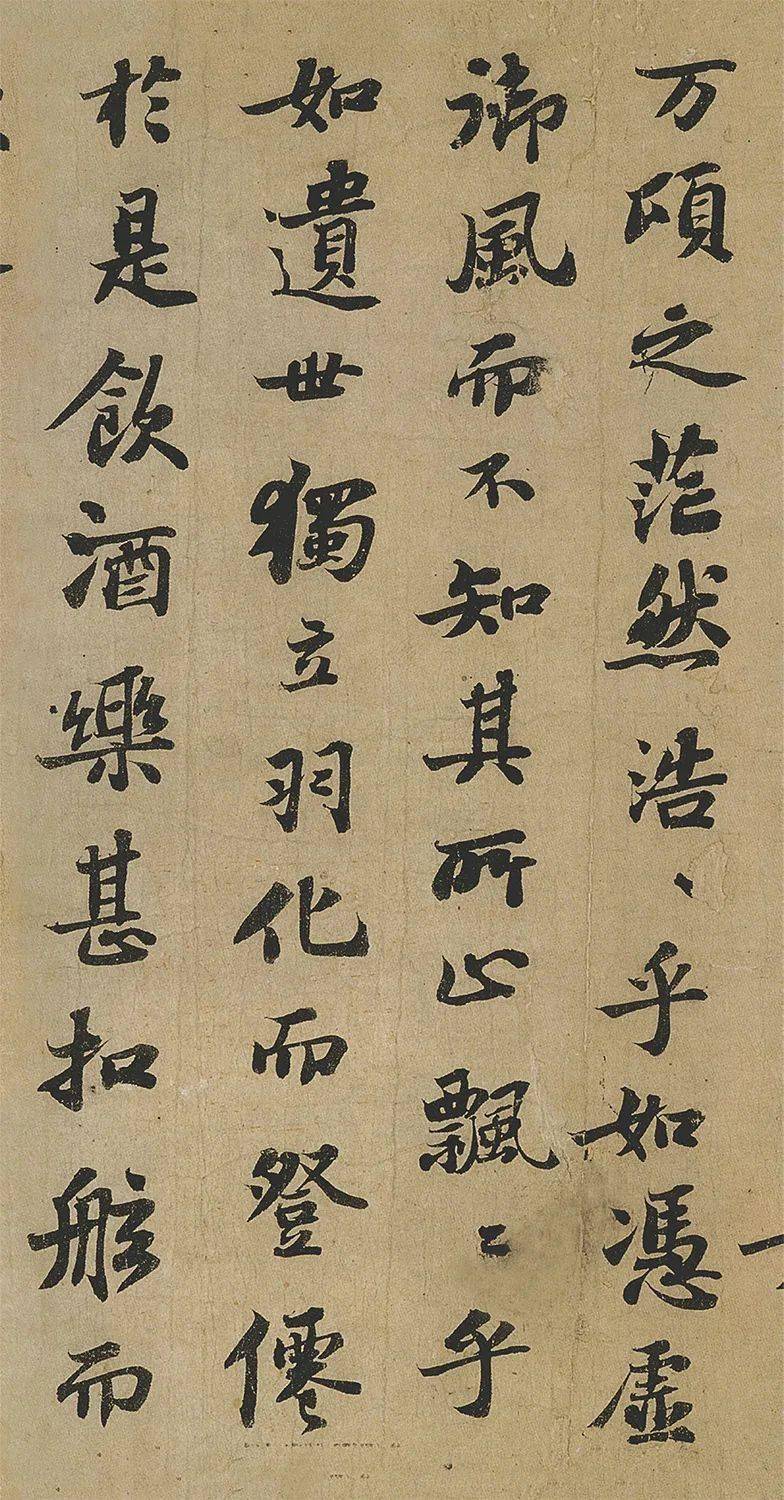 万頃之茫然浩、乎如憑虛
御風而不知其所止飄〻乎
如遺世獨立羽化而登僊
於是飲酒樂甚扣舷而